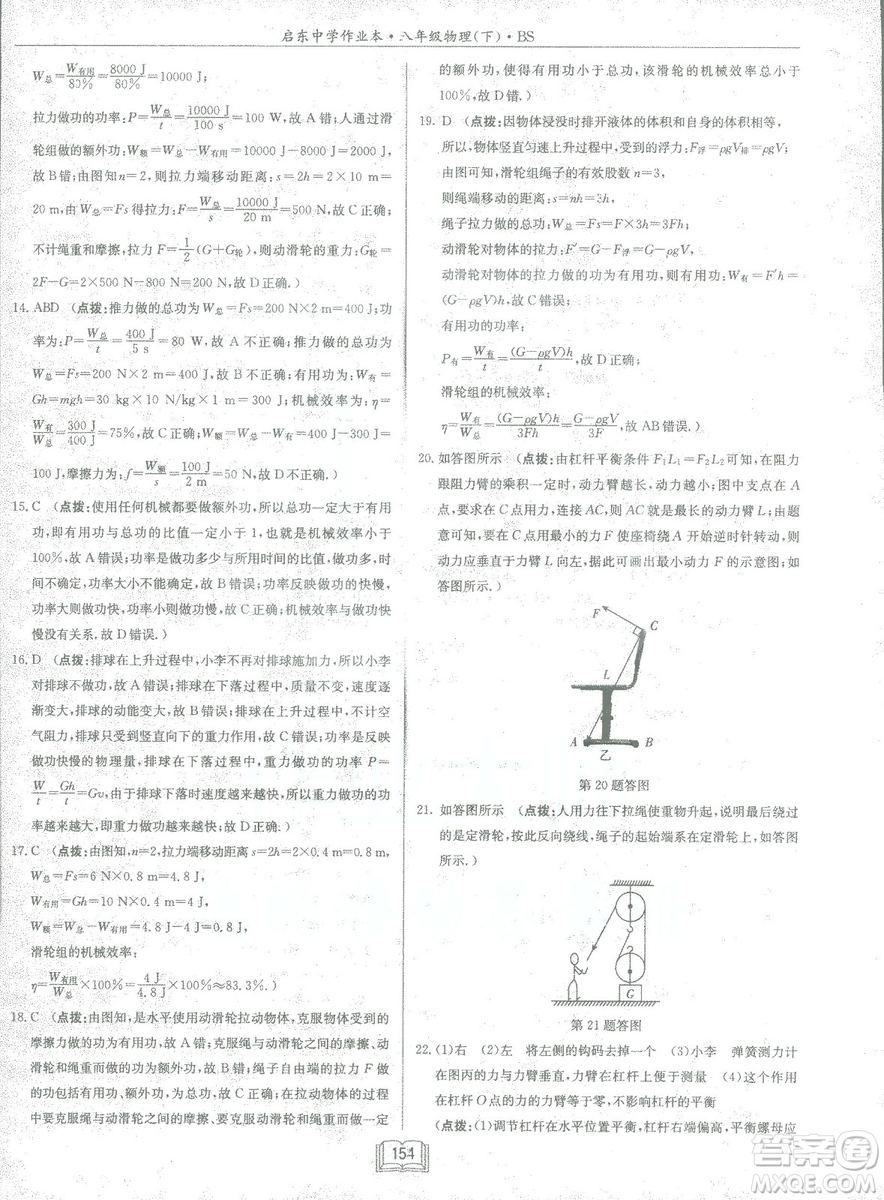 启东中学作业本·八年级物理(下)·BS
W总=W有用/80%=8000 J/80%=10000 J;
拉力做功的功率:P=W总/t=10000 J/100 s=100 W,故 A 错;人通过滑
轮组做的额外功:W额=W总-W有用=10000 J-8000 J=2000 J,
故 B 错;由图知 n=2,则拉力端移动距离:s=2h=2×10 m=
20 m,由 W总=Fs 得拉力:F=W总/s=10000 J/20 m=500 N,故 C 正确;
不计绳重和摩擦,拉力 F=1/2(G+G轮),则动滑轮的重力:G轮=
2F-G=2×500 N-800 N=200 N,故 D 正确.)
14. ABD (点拨:推力做的总功为 W总=Fs=200 N×2 m=400 J;功
率为:P=W总/t=400 J/5 s=80 W,故 A 不正确;推力做的总功为
W总=Fs=200 N×2 m=400 J,故 B 不正确;有用功为:W有=
Gh=mgh=30 kg×10 N/kg×1 m=300 J;机械效率为:η=
W有/W总=300 J/400 J=75%,故 C 正确;额外功 W额=W总-W有用=
100 J,摩擦力为:f=W额/s=100 J/2 m=50 N,故 D 不正确.)
15. C (点拨:使用任何机械都要做额外功,所以总功一定大于有用
功,即有用功与总功的比值一定小于 1,就是说机械效率小于
100%,故 A 错误;功率是做功多少与所用时间的比值,时间不
确定,功率大小不能确定,故 B 错误;功率反映做功的快慢,
功率大则做功快,功率小则做功慢,故 C 正确;功率与做功快
慢没有关系.故 D 错误.)
16. D (点拨:排球在上升过程中,小李不再对排球施加力,所以小李
对排球不做功,故 A 错误;排球在下落过程中,质量不变,速度逐
渐变大,排球的动能变大,故 B 错误;排球在上升过程中,不计空
气阻力,排球只受到竖直向下的重力作用,故 C 错误;功率是表
示做功快慢的物理量,排球在下落过程中,重力做功的功率 P=
W/t=Gh/t=Gv,由于排球下落时速度越来越快,所以重力做功的功
率越来越大,即重力做功越来越快;故 D 正确.)
17. C (点拨:由图知,n=2,拉力端移动距离 s=2h=2×0.4 m=0.8 m,
W总=Fs=6 N×0.8 m=4.8 J,
W有用=Gh=10 N×0.4 m=4 J,
W额=W总-W有用=4.8 J-4 J=0.8 J,
滑轮组的机械效率:
η=W有用/W总×100%=4 J/4.8 J×100%≈83.3%.)
18. C (点拨:由图知,是水平使用动滑轮拉动物体,克服物体受到的
摩擦力做的功为有用功,故 A 错误;克服绳与动滑轮之间的摩擦、动
滑轮和绳重做的功为额外功,故 B 错误;绳子自由端的拉力 F 做
的功,包括有用功和额外功,为总功,故 C 正确;在拉动物体的过程
中要克服绳与动滑轮之间的摩擦、要克服动滑轮和绳重做一定
的额外功,使得有用功小于总功,该滑轮的机械效率总小于
100%,故 D 错.)
19. D (点拨:因物体浸没时排开液体的体积和自身的体积相等,
所以,物体竖直匀速上升过程中,受到的浮力:F浮=ρgV排=ρgV,
由图可知,滑轮组绳子的有效股数 n=3,
则绳端移动的距离:s=nh=3h,
绳子拉力做的总功:W总=Fs=F×3h=3Fh;
动滑轮对物体的拉力:F′=G-F浮=G-ρgV,
动滑轮对物体的拉力做的功为有用功,则有用功:W有=F′h=
(G-ρgV)h,故 C 错误;
有用功的功率:
P有=W有/t=(G-ρgV)h/t,故 D 正确;
滑轮组的机械效率:
η=W有/W总=(G-ρgV)h/3Fh=G-ρgV/3F,故 AB 错误.)
20. 如答图所示 (点拨:由杠杆平衡条件 F₁L₁=F₂L₂ 可知,在阻力
跟阻力臂的乘积一定时,动力臂越长,动力越小;图中支点在 A
点,故在 C 点用力,连接 AC,则 AC 就是最长的动力臂 L;由题
意可知,要在 C 点用最小的力 F 使座椅绕 A 开始逆时针转动,
动力应垂直于力臂 L 向左,据此可画出最小动力 F 的示意图;如
答图所示.)
F C
L
A B
乙
第 20 题答图
21. 如答图所示 (点拨:人用力往下拉绳使重物升起,说明最后绕过
的是定滑轮,按此反向绕线,绳子的起始端系在定滑轮上,如答图
所示.)
G
第 21 题答图
22. (1)右 (2)左 将左侧的钩码去掉一个 (3)小李 弹簧测力计
在图丙的力与力臂垂直,力臂在杠杆上便于测量 (4)这个作用
在杠杆 O 点的力的力臂等于零,不影响杠杆的平衡
(点拨:(1)调节杠杆在水平位置平衡,杠杆右端偏高,平衡螺母应
154
答案圈
MXQE.COM